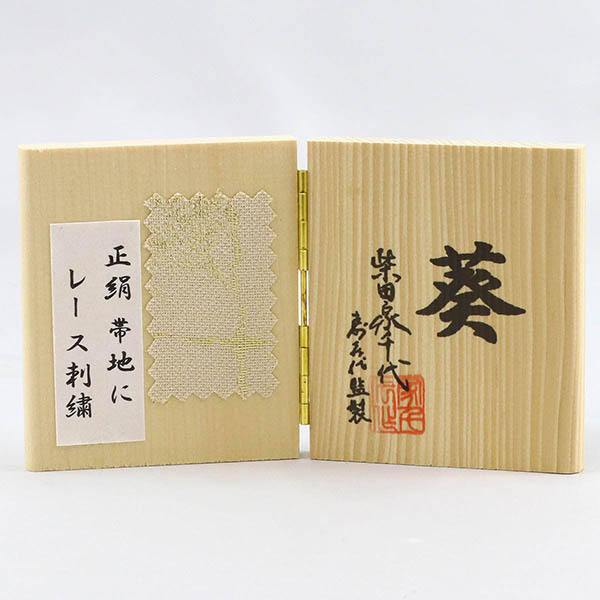 正絹帯地に
レース刺繍
葵
柴田家千代
監製